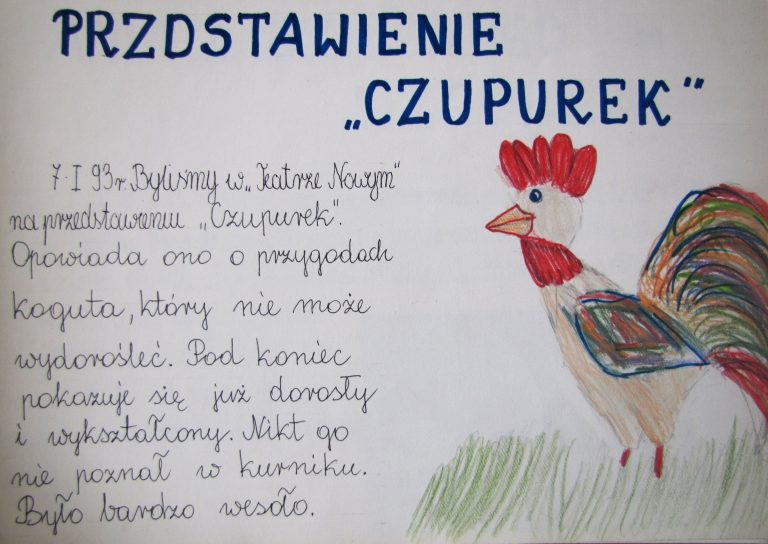 PRZDSTAWIENIE
„CZUPUREK"
7·I 93r Byliśmy w „Teatrze Nowym"
na przedstawieniu „Czupurek".
Opowiada ono o przygodach
koguta, który nie może
wydorośleć. Pod koniec
pokazuje się już dorosły
i wykształcony. Nikt go
nie poznał w kurniku.
Było bardzo wesoło.